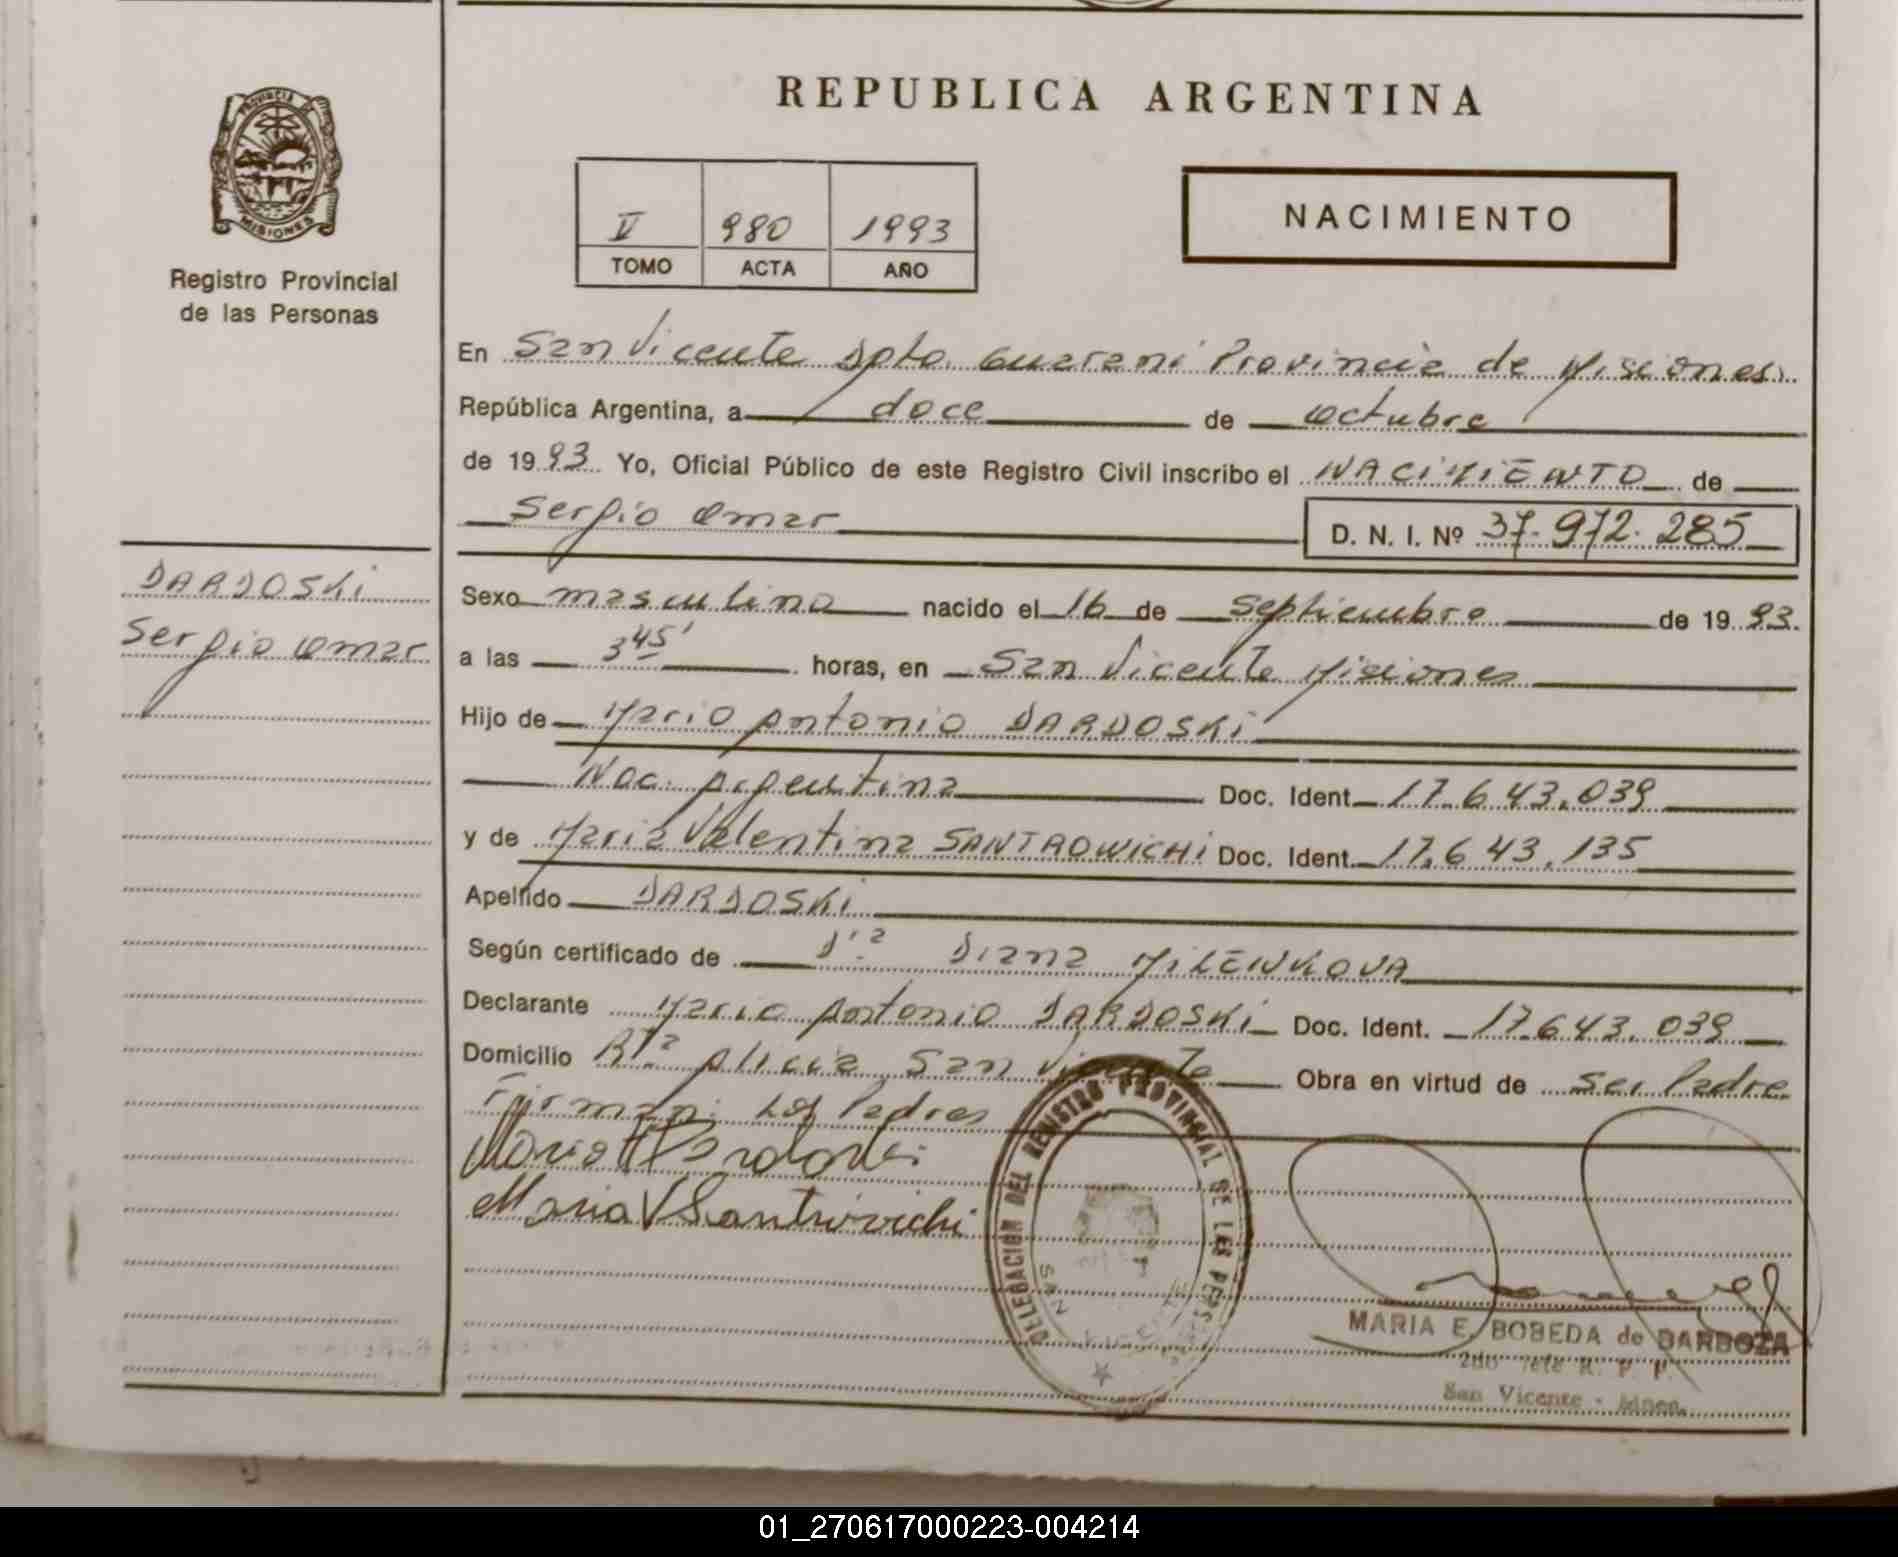 REPUBLICA ARGENTINA
PROVINCIA DE
MISIONES
Registro Provincial
de las Personas
V 980 1993
TOMO ACTA AÑO
NACIMIENTO
En San Vicente Dpto. Guarani Provincia de Misiones.
República Argentina, a doce de octubre
de 1993 Yo, Oficial Público de este Registro Civil inscribo el NACIMIENTO de
Sergio Omar D. N. I. Nº 37.972.285
DARDOSKi
Sergio Omar
Sexo masculino nacido el 16 de Septiembre de 1993.
a las 3 45' horas, en San Vicente Misiones
Hijo de Mario Antonio DARDOSKi
Nac. Argentina Doc. Ident. 17.643.039
y de Maria Valentina SANTROWICHi Doc. Ident. 17.643.135
Apellido DARDOSKi
Según certificado de Dra Diana MILENKOVA
Declarante Mario Antonio DARDOSKi Doc. Ident. 17643.039
Domicilio Rta Alicia San Vicente Obra en virtud de ser Padre
Firman: Los Padres
Mario A Dardoski
Maria V Santrovichi
DELEGACION DEL REGISTRO PROVINCIAL DE LAS PERS
SAN VICENTE
MARIA E. BOBEDA de BARBOZA
2do Jefe R. P. P.
San Vicente - Mnes.
01_270617000223-004214